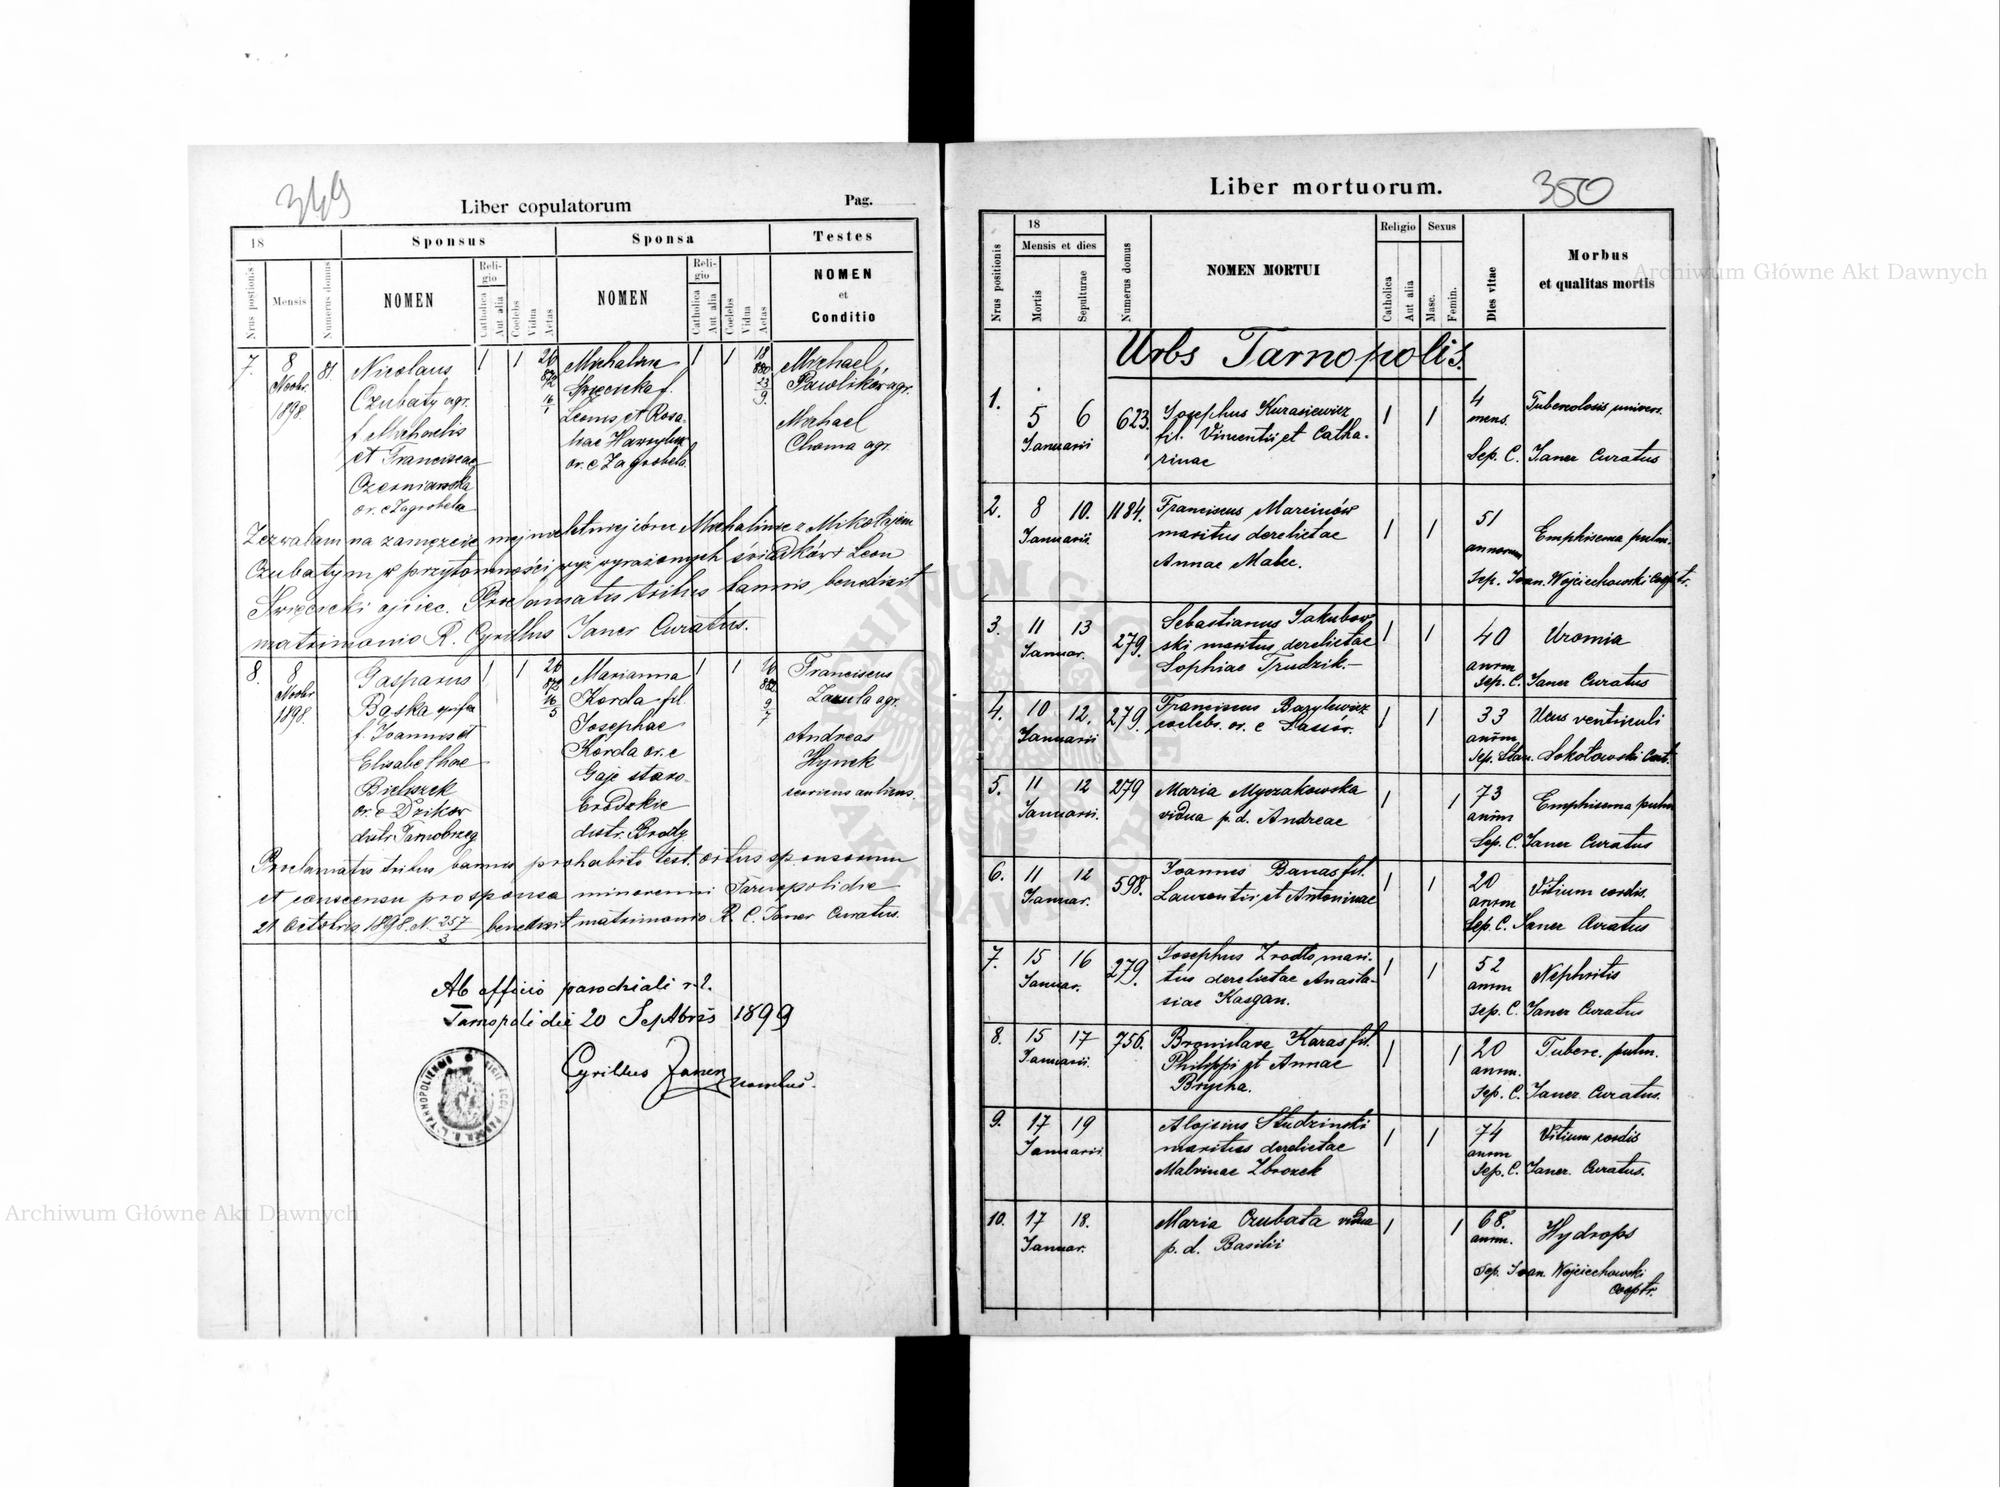 349
Liber copulatorum
Pag.
18
Sponsus
Sponsa
Testes
Nrus postionis
Mensis
Numerus domus
NOMEN
Reli-
gio
Catholica
Aut alia
Coelebs
Vidua
Aetas
NOMEN
Reli-
gio
Catholica
Aut alia
Coelebs
Vidua
Aetas
NOMEN
et
Conditio
7.
8
Novbr.
1898
81.
Nicolaus
Czubaty agr.
f. Michaelis
et Franciscae
Czerniawska
or. e Zagrobela
1
1
26
872
16
1
Michalina
Święcicka f.
Leonis et Rosa-
liae Hawryluk
or. e Zagrobela
1
1
18
880
23
9.
Michael
Pawlików agr.
Michael
Choma agr.
Zezwalam na zamęźcie mej nieletniej córce Michalinie z Mikołajem
Czubatym w przytomności wyż wyrażonych świadków Leon
Święcicki ojciec. Proclamatis tribus bannis, benedixit
matrimonio R. Cyrillus Janer Curatus.
8.
8
Novbr
1898.
Gasparus
Bąska
f. Joannis et
Elisabethae
Bieliszek
or. e Dzików
distr. Tarnobrzeg
1
1
26
872
16
5
Marianna
Korda fil.
Josephae
Korda or. e
Gaje staro-
brodzkie
distr. Brody
1
1
16
882
9
7
Franciscus
Zazula agr.
Andreas
Hynek
Proclamatis tribus bannis prohabito test. ortus sponsorum
et consensu pro sponsa minorenni Tarnopoli die
21 Octobris 1898. N. 257/3 benedixit matrimonio R. C. Janer Curatus.
Ab officio parochiali r. l.
Tarnopoli die 20 Septbris 1899
Cyrillus Janer
Liber mortuorum.
350
Nrus positionis
18
Mensis et dies
Mortis
Sepulturae
Numerus domus
NOMEN MORTUI
Religio
Catholica
Aut alia
Sexus
Masc.
Femin.
Dies vitae
Morbus
et qualitas mortis
Urbs Tarnopolis.
1.
5 6
Januarii
623.
Josephus Kurasiewicz
fil. Vincentii et Catha-
rinae
1
1
4
mens.
Tuberculosis univers.
Sep. C. Janer Curatus
2.
8 10.
Januarii
1184.
Franciscus Marcinów
maritus derelictae
Annae Malec.
1
1
51
annorum
Emphisema pulm.
Sep. Joan. Wojciechowski Cooptr.
3.
11 13
Januar.
279.
Sebastianus Jakubow-
ski maritus derelictae
Sophiae Trudzik.-
1
1
40
annm
Uromia
Sep. C. Janer Curatus
4.
10 12.
Januarii
279.
Franciscus Bazylewicz
coelebs. or. e Sasów.
1
1
33
annm
Ulcus ventriculi
Sep. Stan. Sokołowski Coot.
5.
11 12
Januarii.
279
Maria Myczakowska
vidua p. d. Andreae
1
1
73
annm
Emphisema pulm
Sep. C. Janer Curatus
6.
11 12
Januar.
598.
Joannes Banas fil.
Laurentii et Antoninae
1
1
20
annm
Vitium cordis.
Sep. C. Janer Curatus
7.
15 16
Januar.
279.
Josephus Zrodło mari-
tus derelictae Anasta-
siae Kasgan.
1
1
52
annm
Nephritis
Sep. C. Janer Curatus
8.
15 17
Januarii.
756.
Bronislava Karas fil.
Philippi et Annae
Brycha.
1
1
20
annm.
Tuberc. pulm.
Sep. C. Janer. Curatus.
9.
17 19
Januarii.
Alojsius Studzinski
maritus derelictae
Malvinae Zbrozek
1
1
74
annm
Vitium cordis
Sep. C. Janer. Curatus.
10.
17 18.
Januar.
Maria Czubata vidua
p. d. Basilii
1
1
68.
annm.
Hydrops
Sep. Joan. Wojciechowski
Cooptr.
Archiwum Główne Akt Dawnych
Archiwum Główne Akt Dawnych